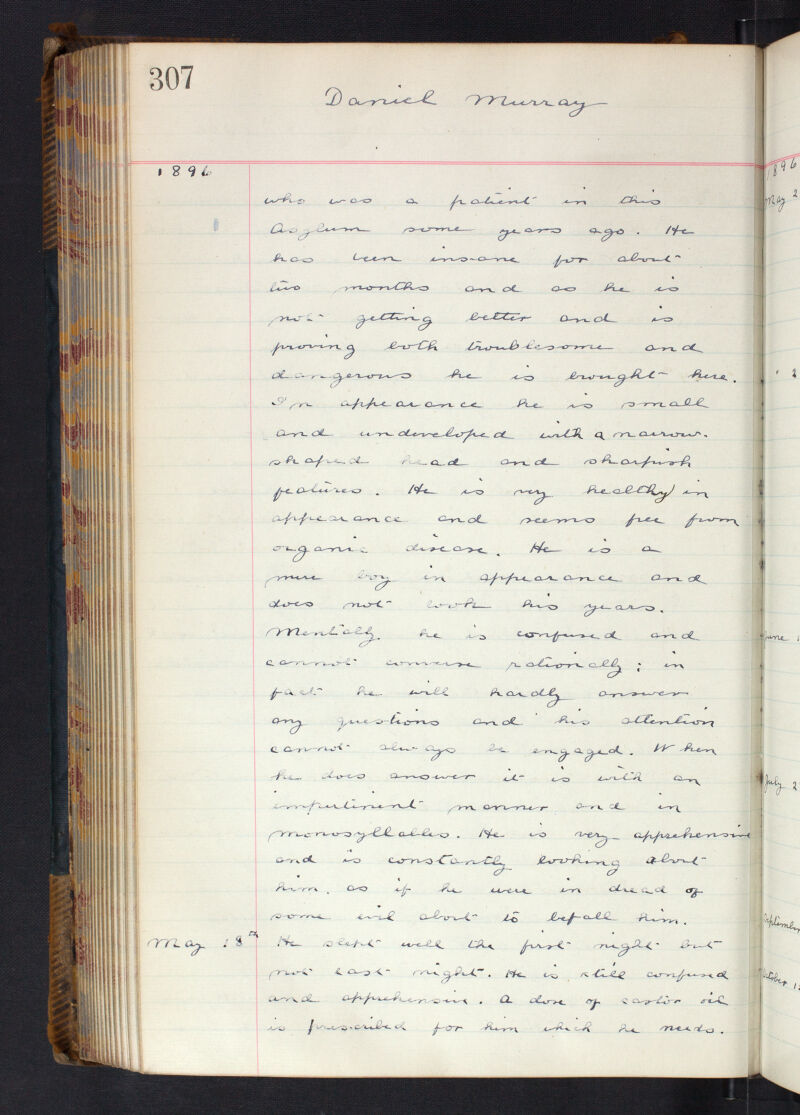 307
Daniel Murray
1896
who was a patient in this
Asylum some years ago. He
has been insane for about
two months and as he is
not getting better and is
proving both troublesome and
dangerous he is brought here.
In appearance he is small
and undeveloped with a narrow-
shaped head and sharpish
features. He is very healthy in
appearance and seems free from
organic disease. He is a
mere boy in appearance and
does not look his years.
Mentally he is confused and
cannot converse rationally; in
fact he will hardly answer
any questions and his attention
cannot always be engaged. When
he does answer it is with an
impertinent manner and in
monosyllables. He is very apprehensive
and is constantly looking about
him, as if he were in dread of
some evil about to befall him.
May 18th He slept well the first night but
not last night. He is still confused
and apprehensive. A dose of castor oil
is prescribed for him which he needs.
1896
May 2
" 2
June 1
July 2
September
October 1